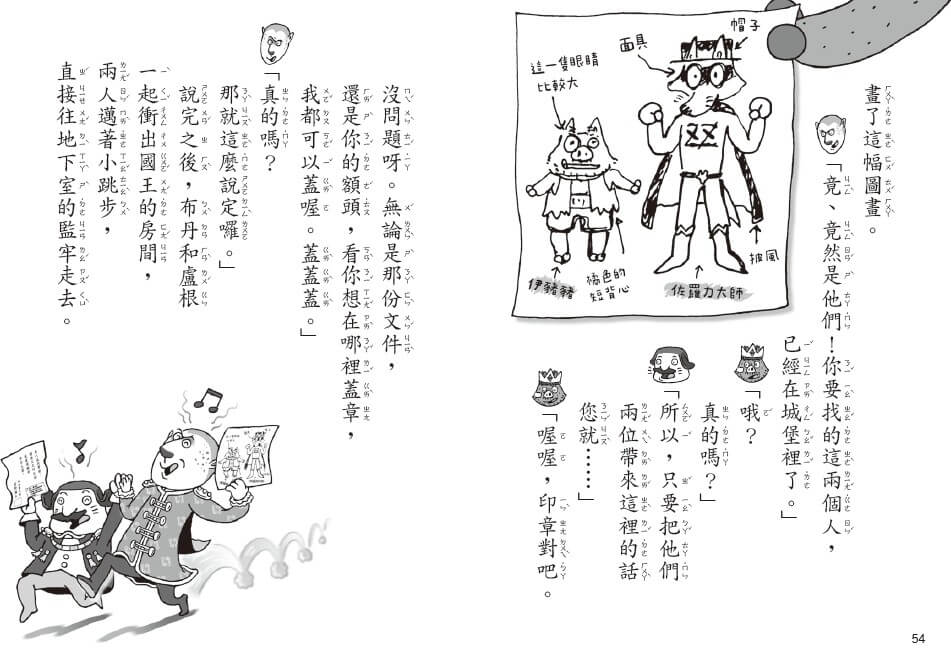 帽子
面具
這一隻眼睛
比較大
披風
橘色的
短背心
佐羅力大師
伊豬豬
畫了這幅圖畫。
「竟、竟然是他們!你要找的這兩個人,
已經在城堡裡了。」
「哦?
真的嗎?」
「所以,只要把他們
兩位帶來這裡的話
您就……」
「喔喔,印章對吧。
沒問題呀。無論是那份文件,
還是你的額頭,看你想在哪裡蓋章,
我都可以蓋喔。蓋蓋蓋。」
「真的嗎?
那就這麼說定囉。」
說完之後,布丹和盧根
一起衝出國王的房間,
兩人邁著小跳步,
直接往地下室的監牢走去。
54